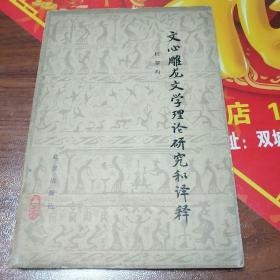 文心雕龙文学理论研究和译释
杜黎均
北京出版社
店 1
址：双城